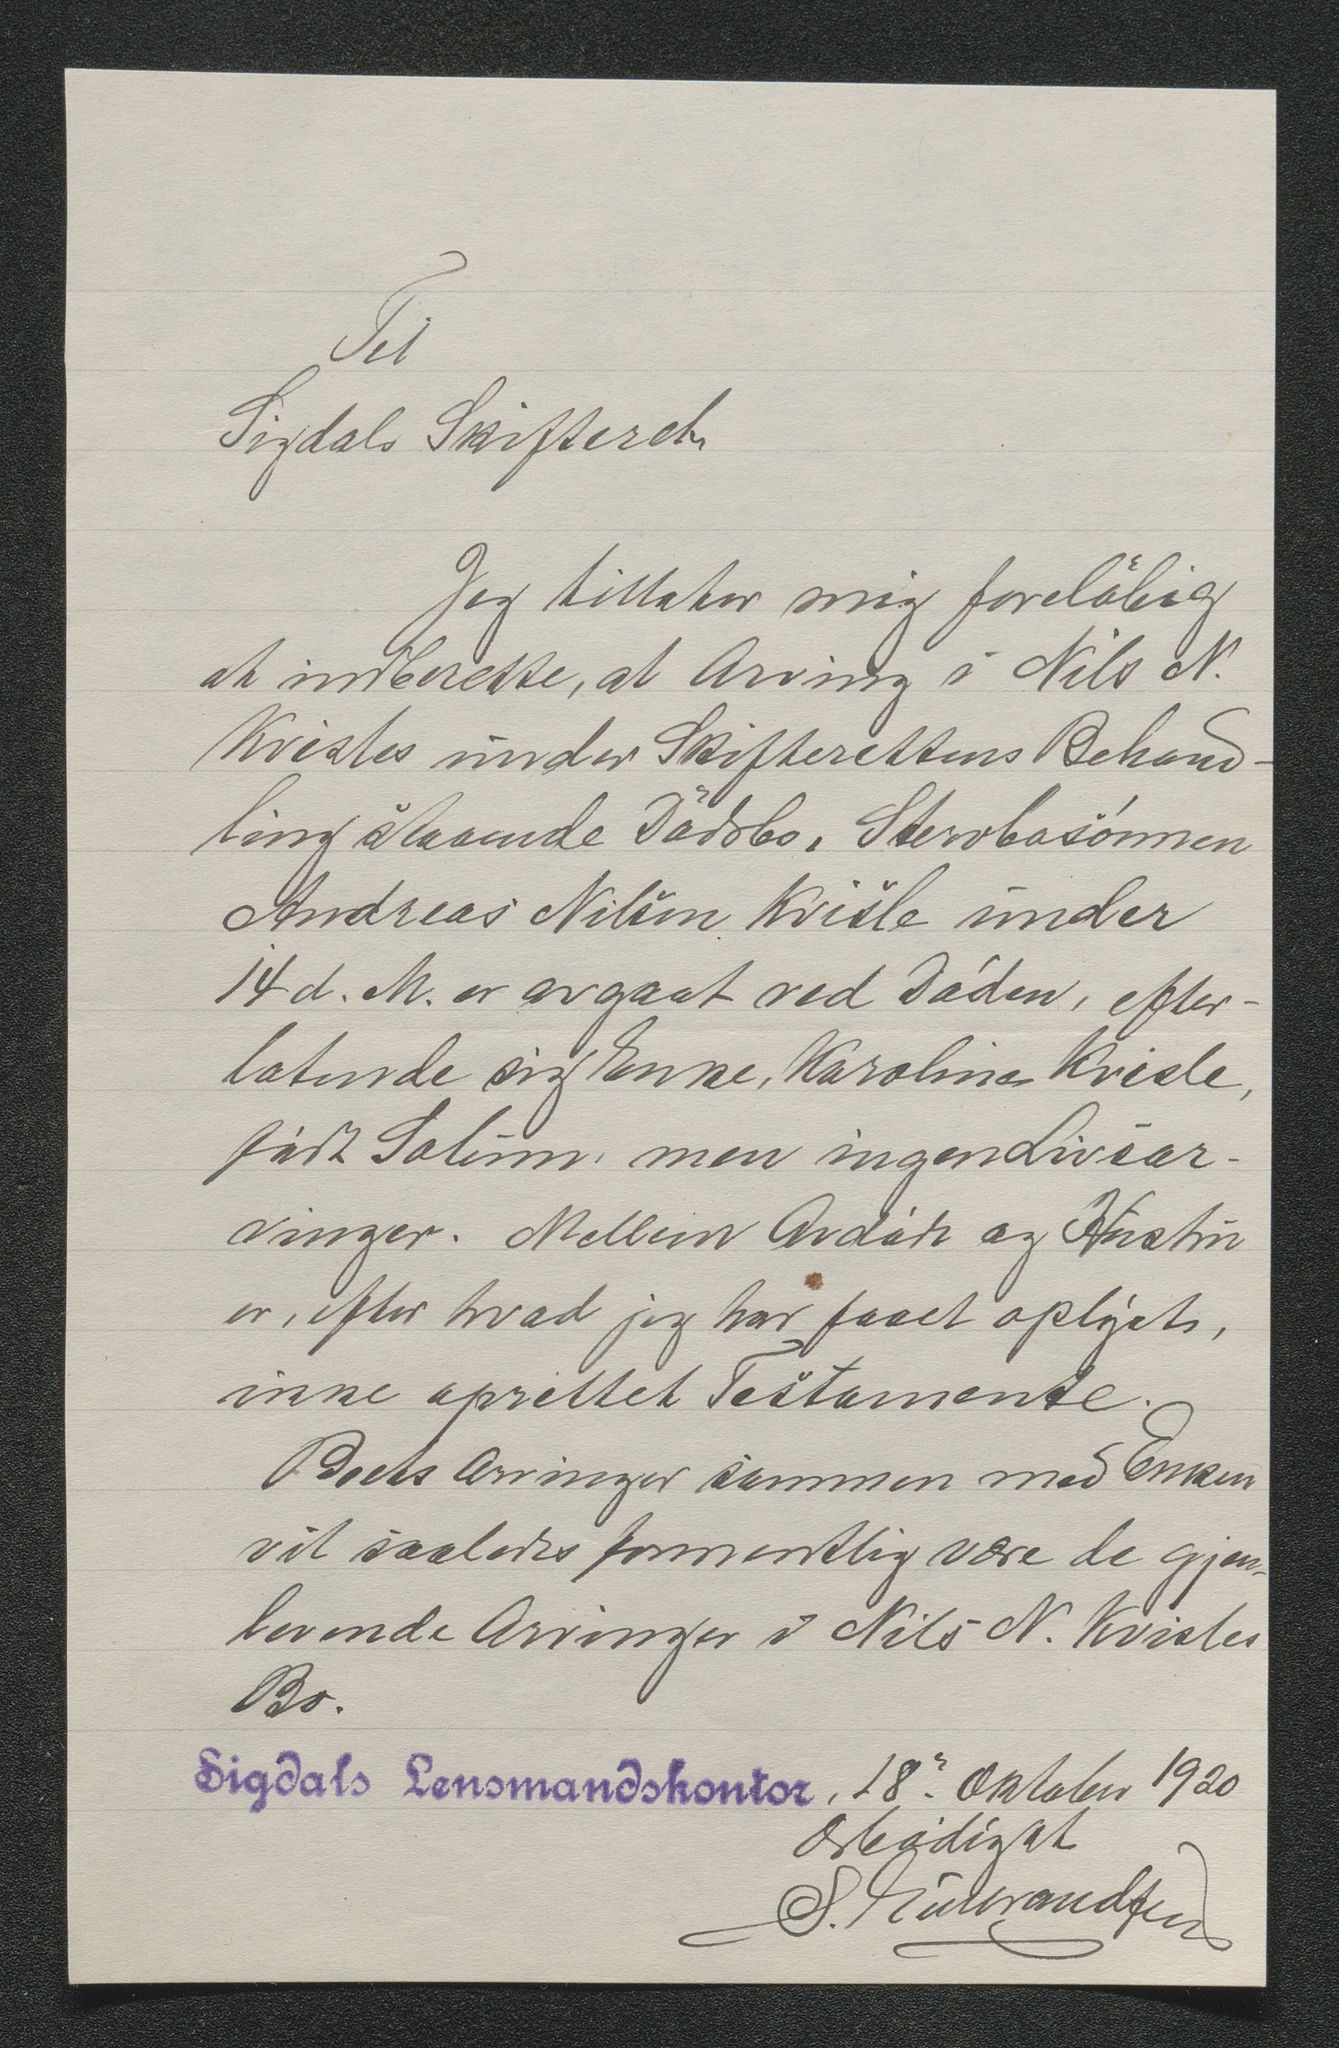 Til
Sigdals Skifteret.
Jeg tillater mig foreløbig
at indberette, at Arving i Nils N.
Kvisles under Skifterettens Behand-
ling staaende Dødsbo, Stervbosønnen
Andreas Nilsen Kvisle under
14 d. M. er avgaat ved Døden, efter-
latende sig Enke, Karoline Kvisle,
født Solum, men ingen Livsar-
vinger. Mellem Avdøde og Hustru
er, efter hvad jeg har faaet oplyst,
ikke oprettet Testamente.
Boets Arvinger sammen med Enken
vil saaledes formentlig være de gjen-
levende Arvinger i Nils N. Kvisles
Bo.
Sigdals Lensmandskontor, 18. Oktober 1920
Ærbødigst
S. Gulbrandsen